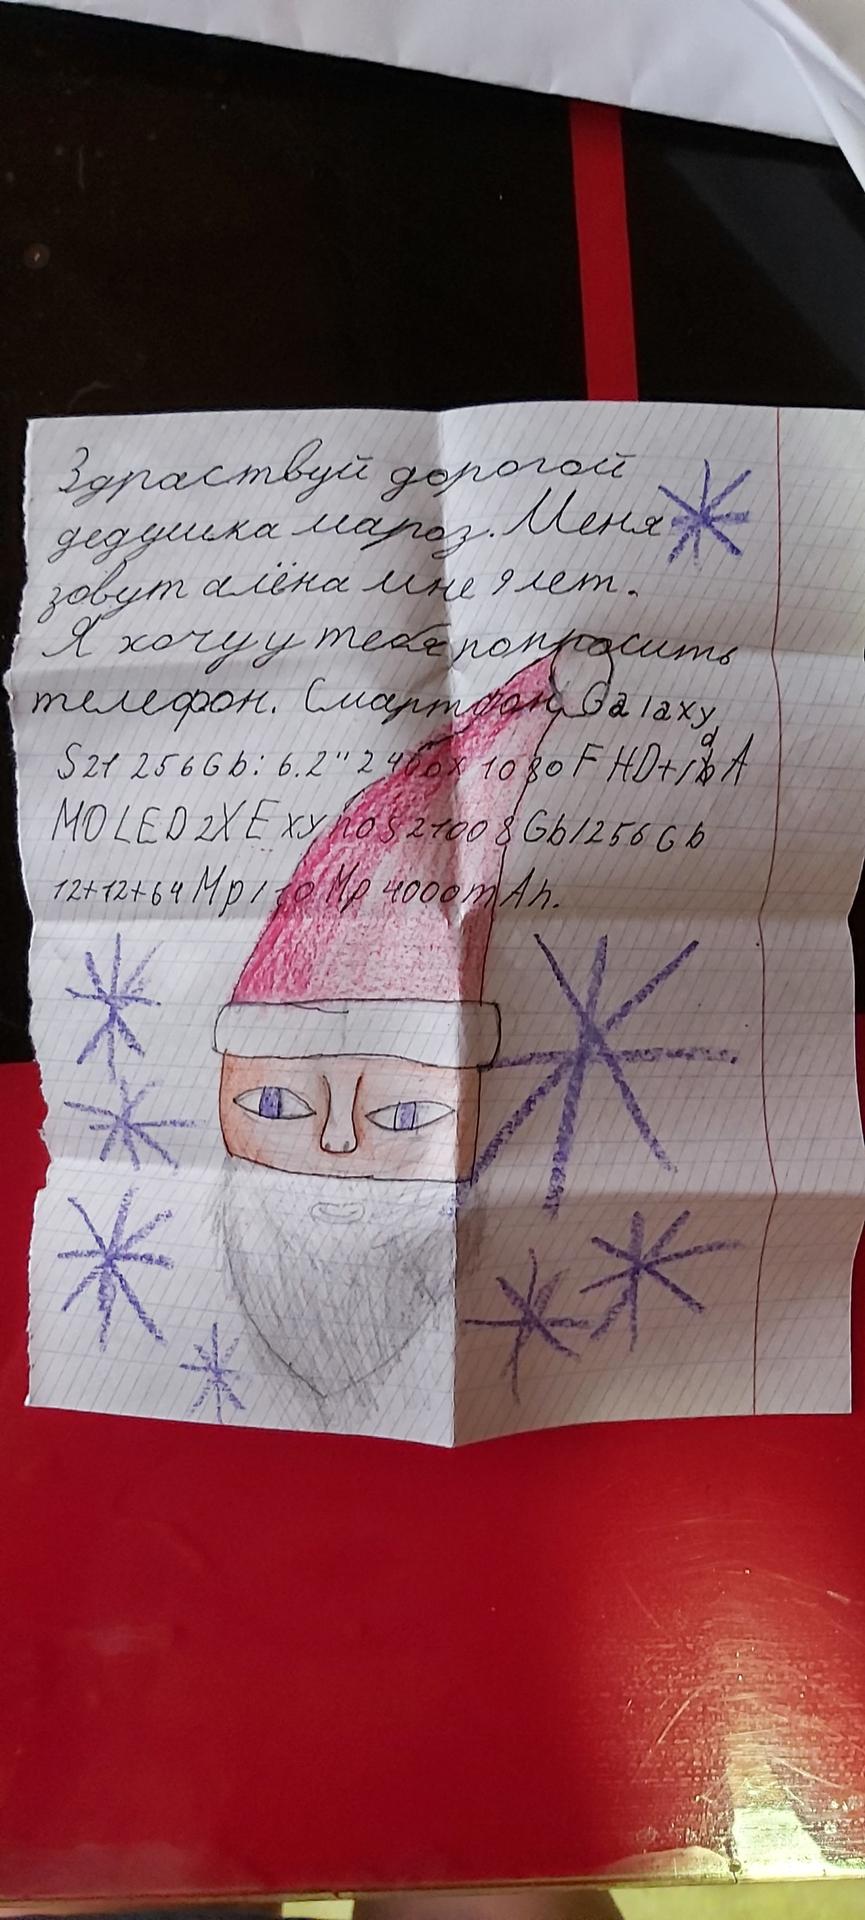 Здраствуй дорогой
дедушка мароз. Меня
зовут алёна мне 9 лет.
Я хочу у тебя попросить
телефон. Смартфон Galaxy
S21 256Gb: 6.2" 2400x1080 FHD+/d A
MOLED 2X Exynos 2100 8Gb/256Gb
12+12+64 Mp/10 Mp 4000mAh.